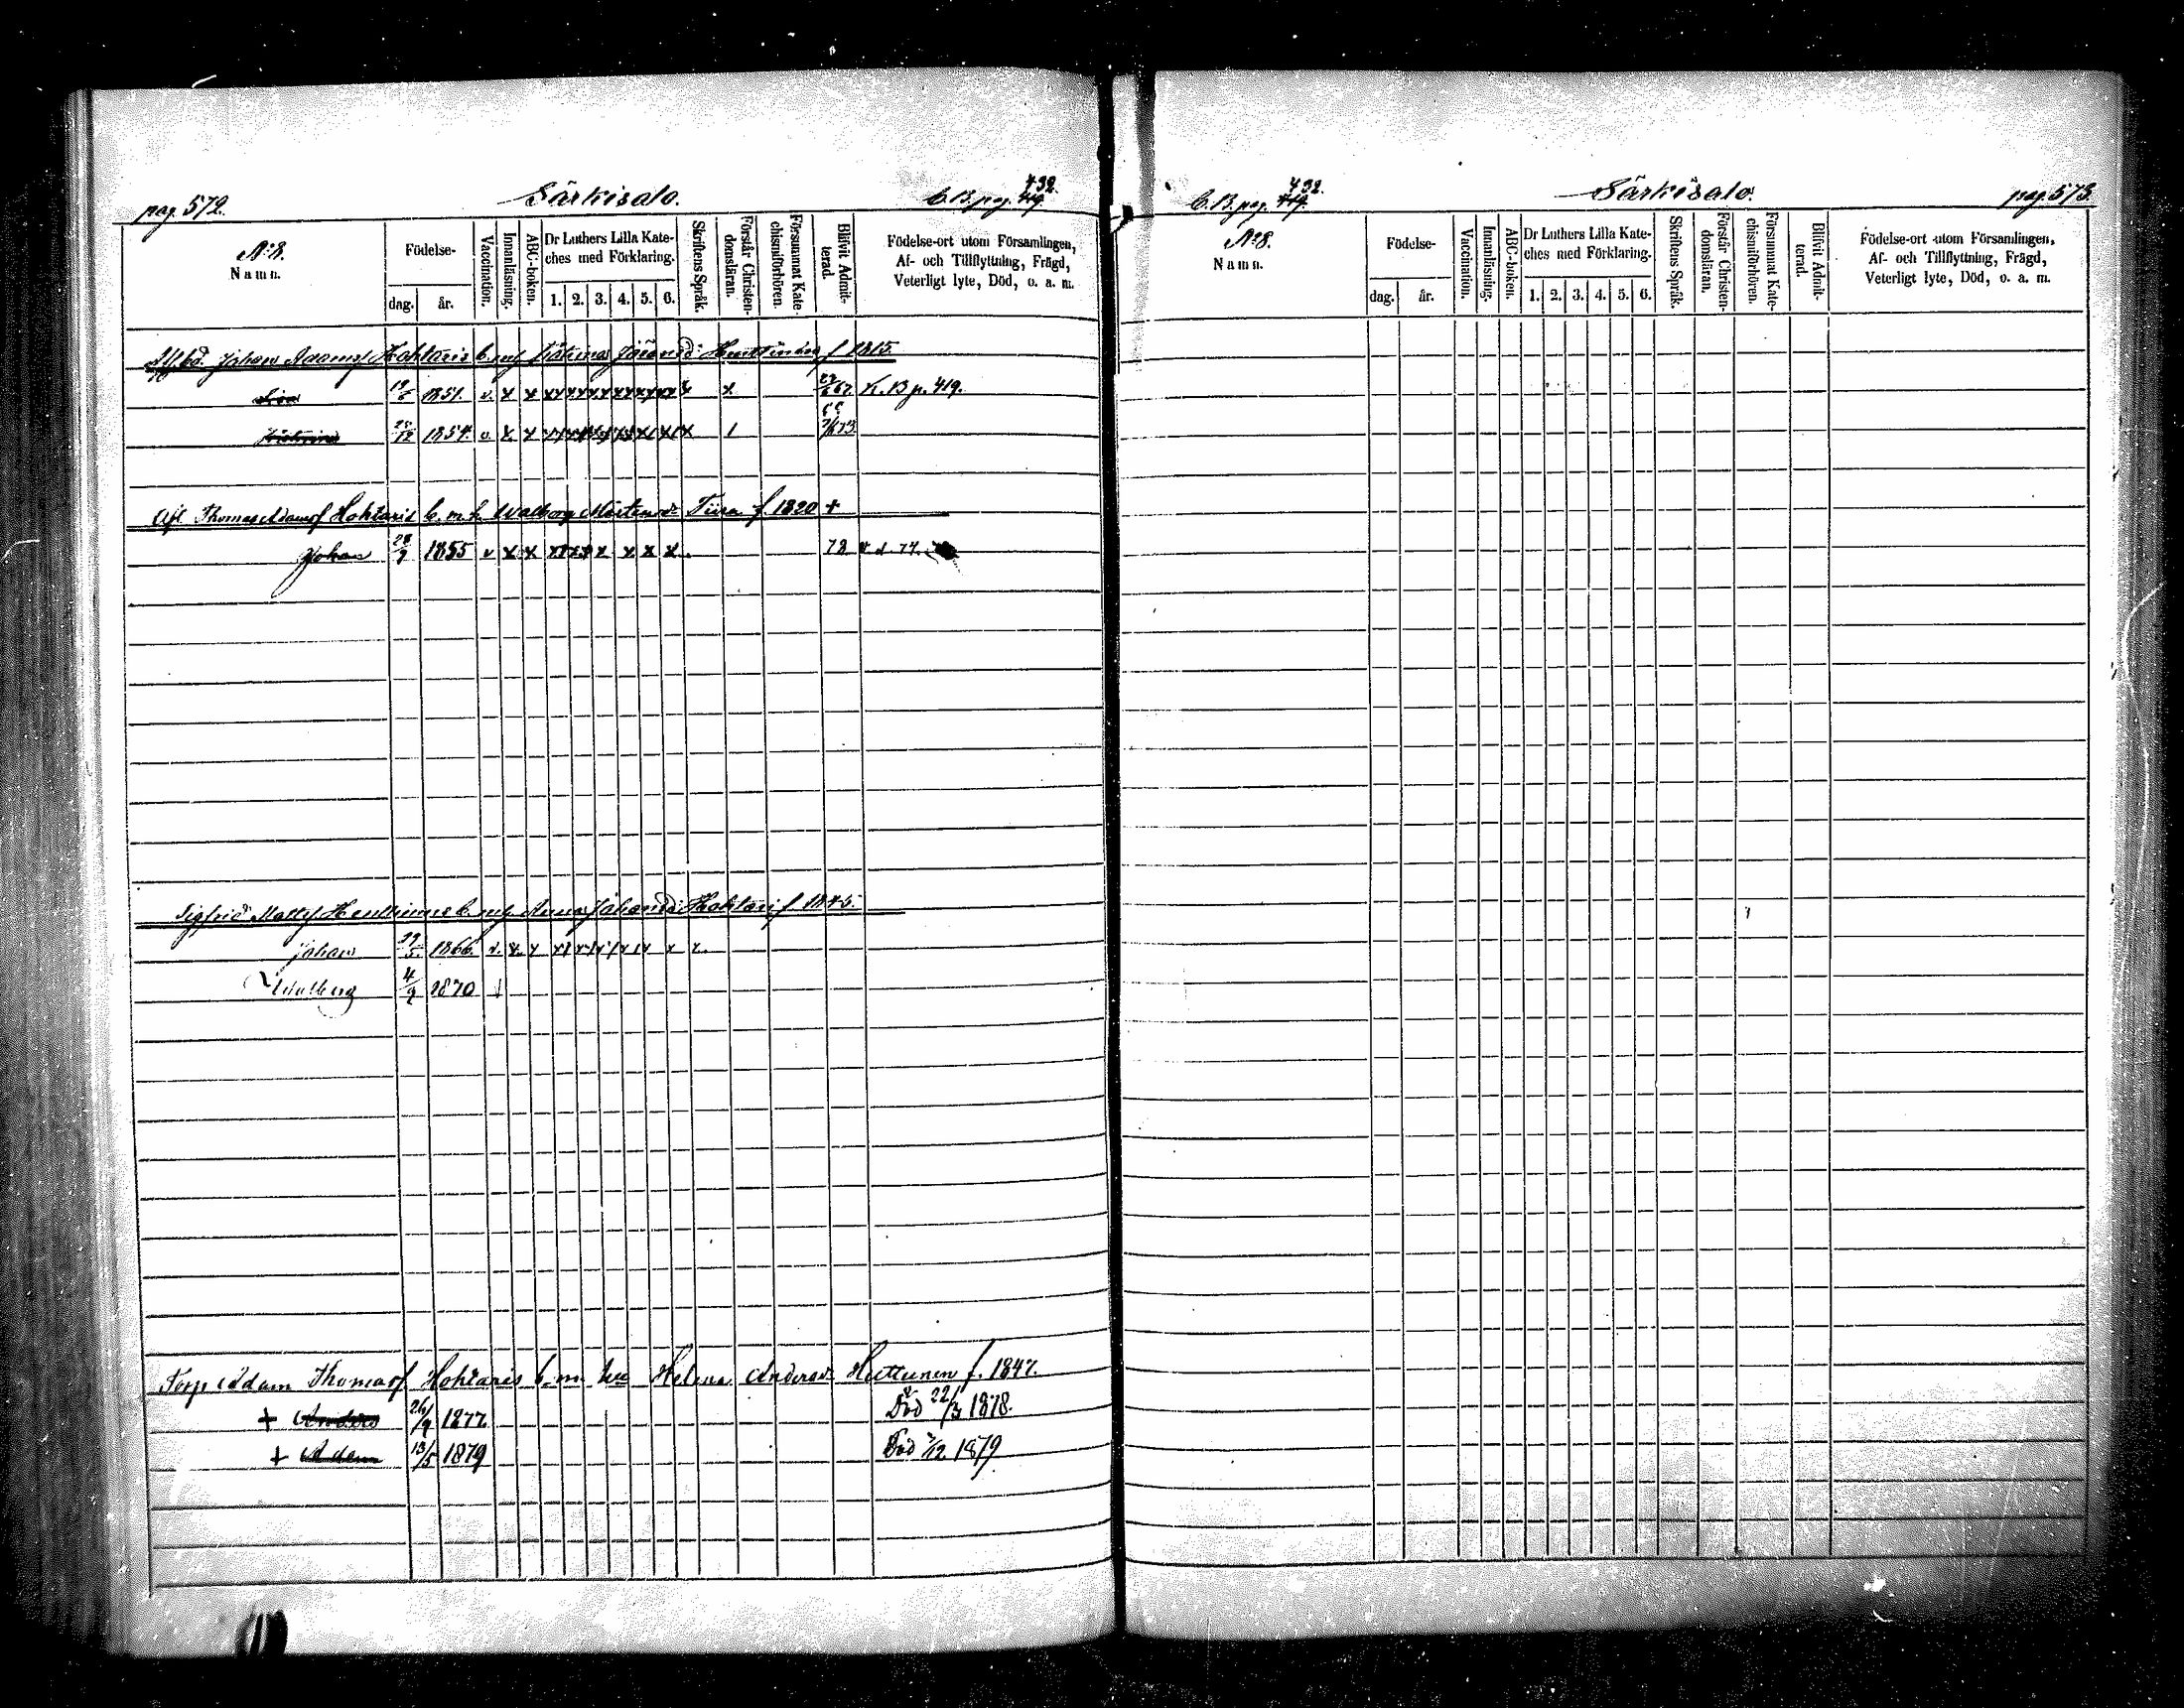 pag. 572. Särkisalo. C.B. pag. 419. 432.
No 8.
Namn.
Födelse-
dag. år.
Vaccination.
Innanläsning.
ABC-boken.
Dr Luthers Lilla Kate-
ches med Förklaring.
1. 2. 3. 4. 5. 6.
Skriftens Språk.
Förstår Christen-
domsläran.
Försummat Kate-
chismiförhören.
Blifvit Admit-
terad.
Födelse-ort utom Församlingen,
Af- och Tillflyttning, Frägd,
Veterligt lyte, Död, o. a. m.
Johan Adamsf Hohtaris b. m. Huttunen f 1815.
1851. v. x x K. B p. 419.
1854. v x x
Afl. Thomas Adamsf Hohtaris b. m. h. Walborg Mårtensdr Tiira f 1820 +
Johan 28/9 1855 v x x 78
Sigfrid Mattsf Huttunen b. m. Anna Johansdr Hohtari f 1845.
Johan 29/5 1866. v. x. x
Walborg 4/9 1870
Torp. Adam Thomasf Hohtaris b. m. hu Helena Andersdr Huttunen f. 1847.
+ Anders 26/9 1877 Död 22/3 1878.
+ Adam 13/5 1879 Död 7/12 1879
C. B. pag. 419. 432. Särkisalo. pag. 573.
No 8.
Namn.
Födelse-
dag. år.
Vaccination.
Innanläsning.
ABC-boken.
Dr Luthers Lilla Kate-
ches med Förklaring.
1. 2. 3. 4. 5. 6.
Skriftens Språk.
Förstår Christen-
domsläran.
Försummat Kate-
chismiförhören.
Blifvit Admit-
terad.
Födelse-ort utom Församlingen,
Af- och Tillflyttning, Frägd,
Veterligt lyte, Död, o. a. m.